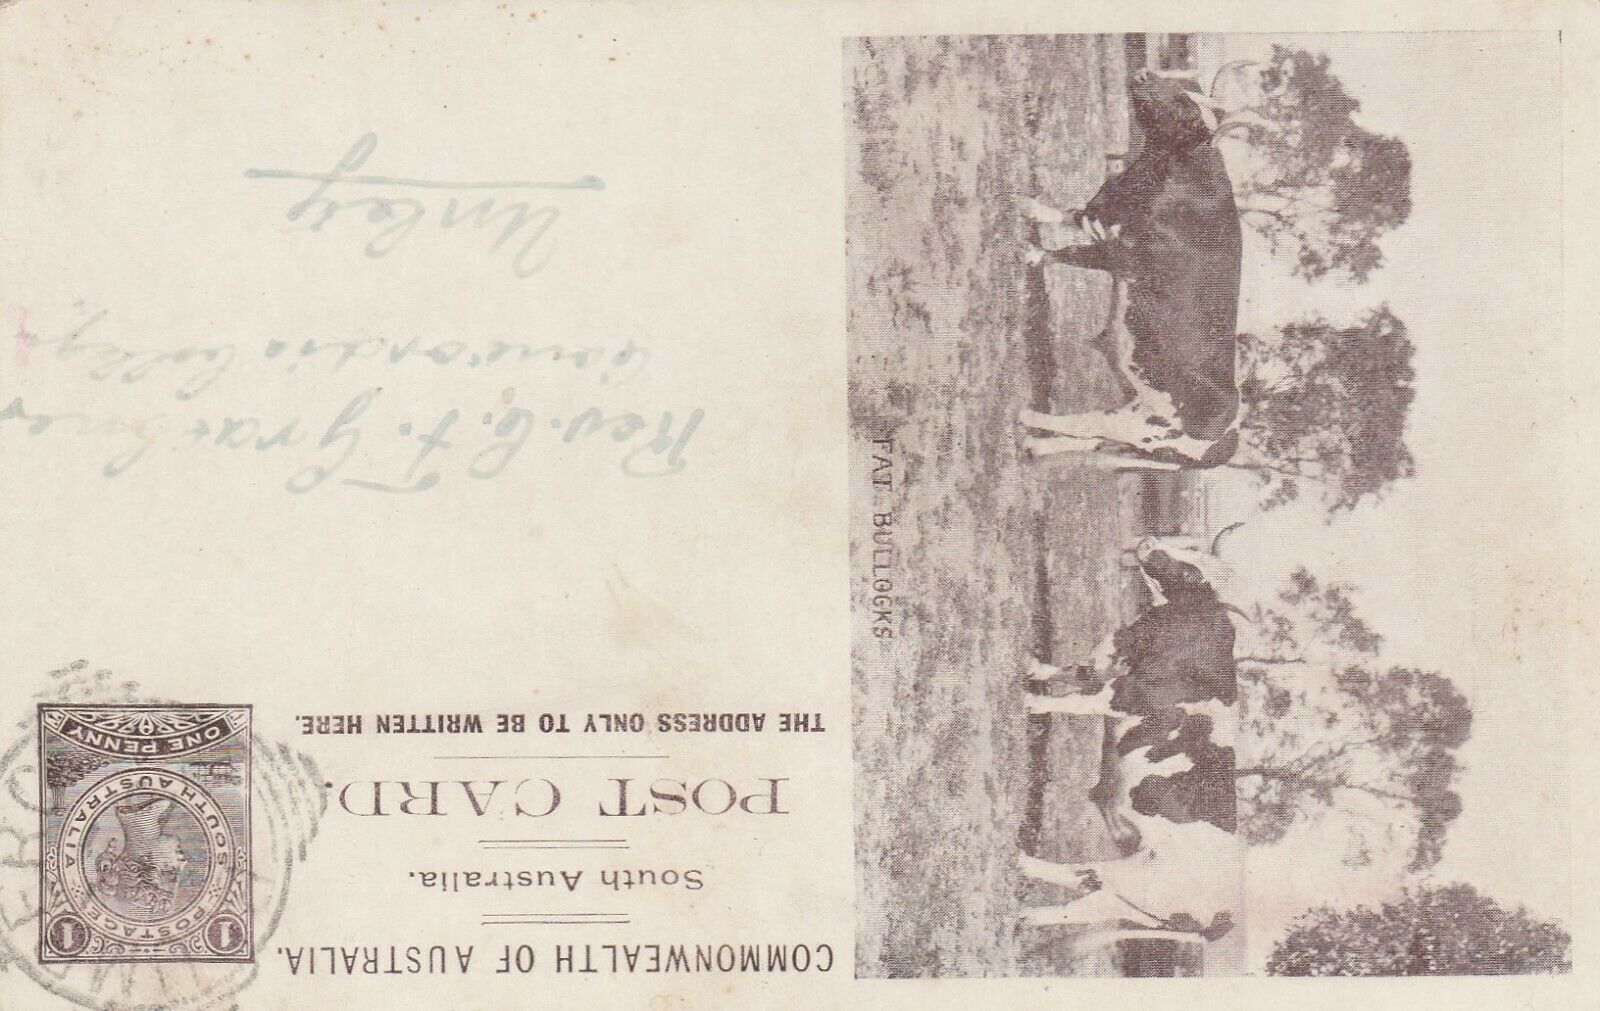 COMMONWEALTH OF AUSTRALIA.
South Australia.
POST CARD.
THE ADDRESS ONLY TO BE WRITTEN HERE.
1 1
POSTAGE
SOUTH AUSTRALIA
ONE PENNY
Rev. C. F. Graebner
Concordia College,
Unley
FAT BULLOCKS